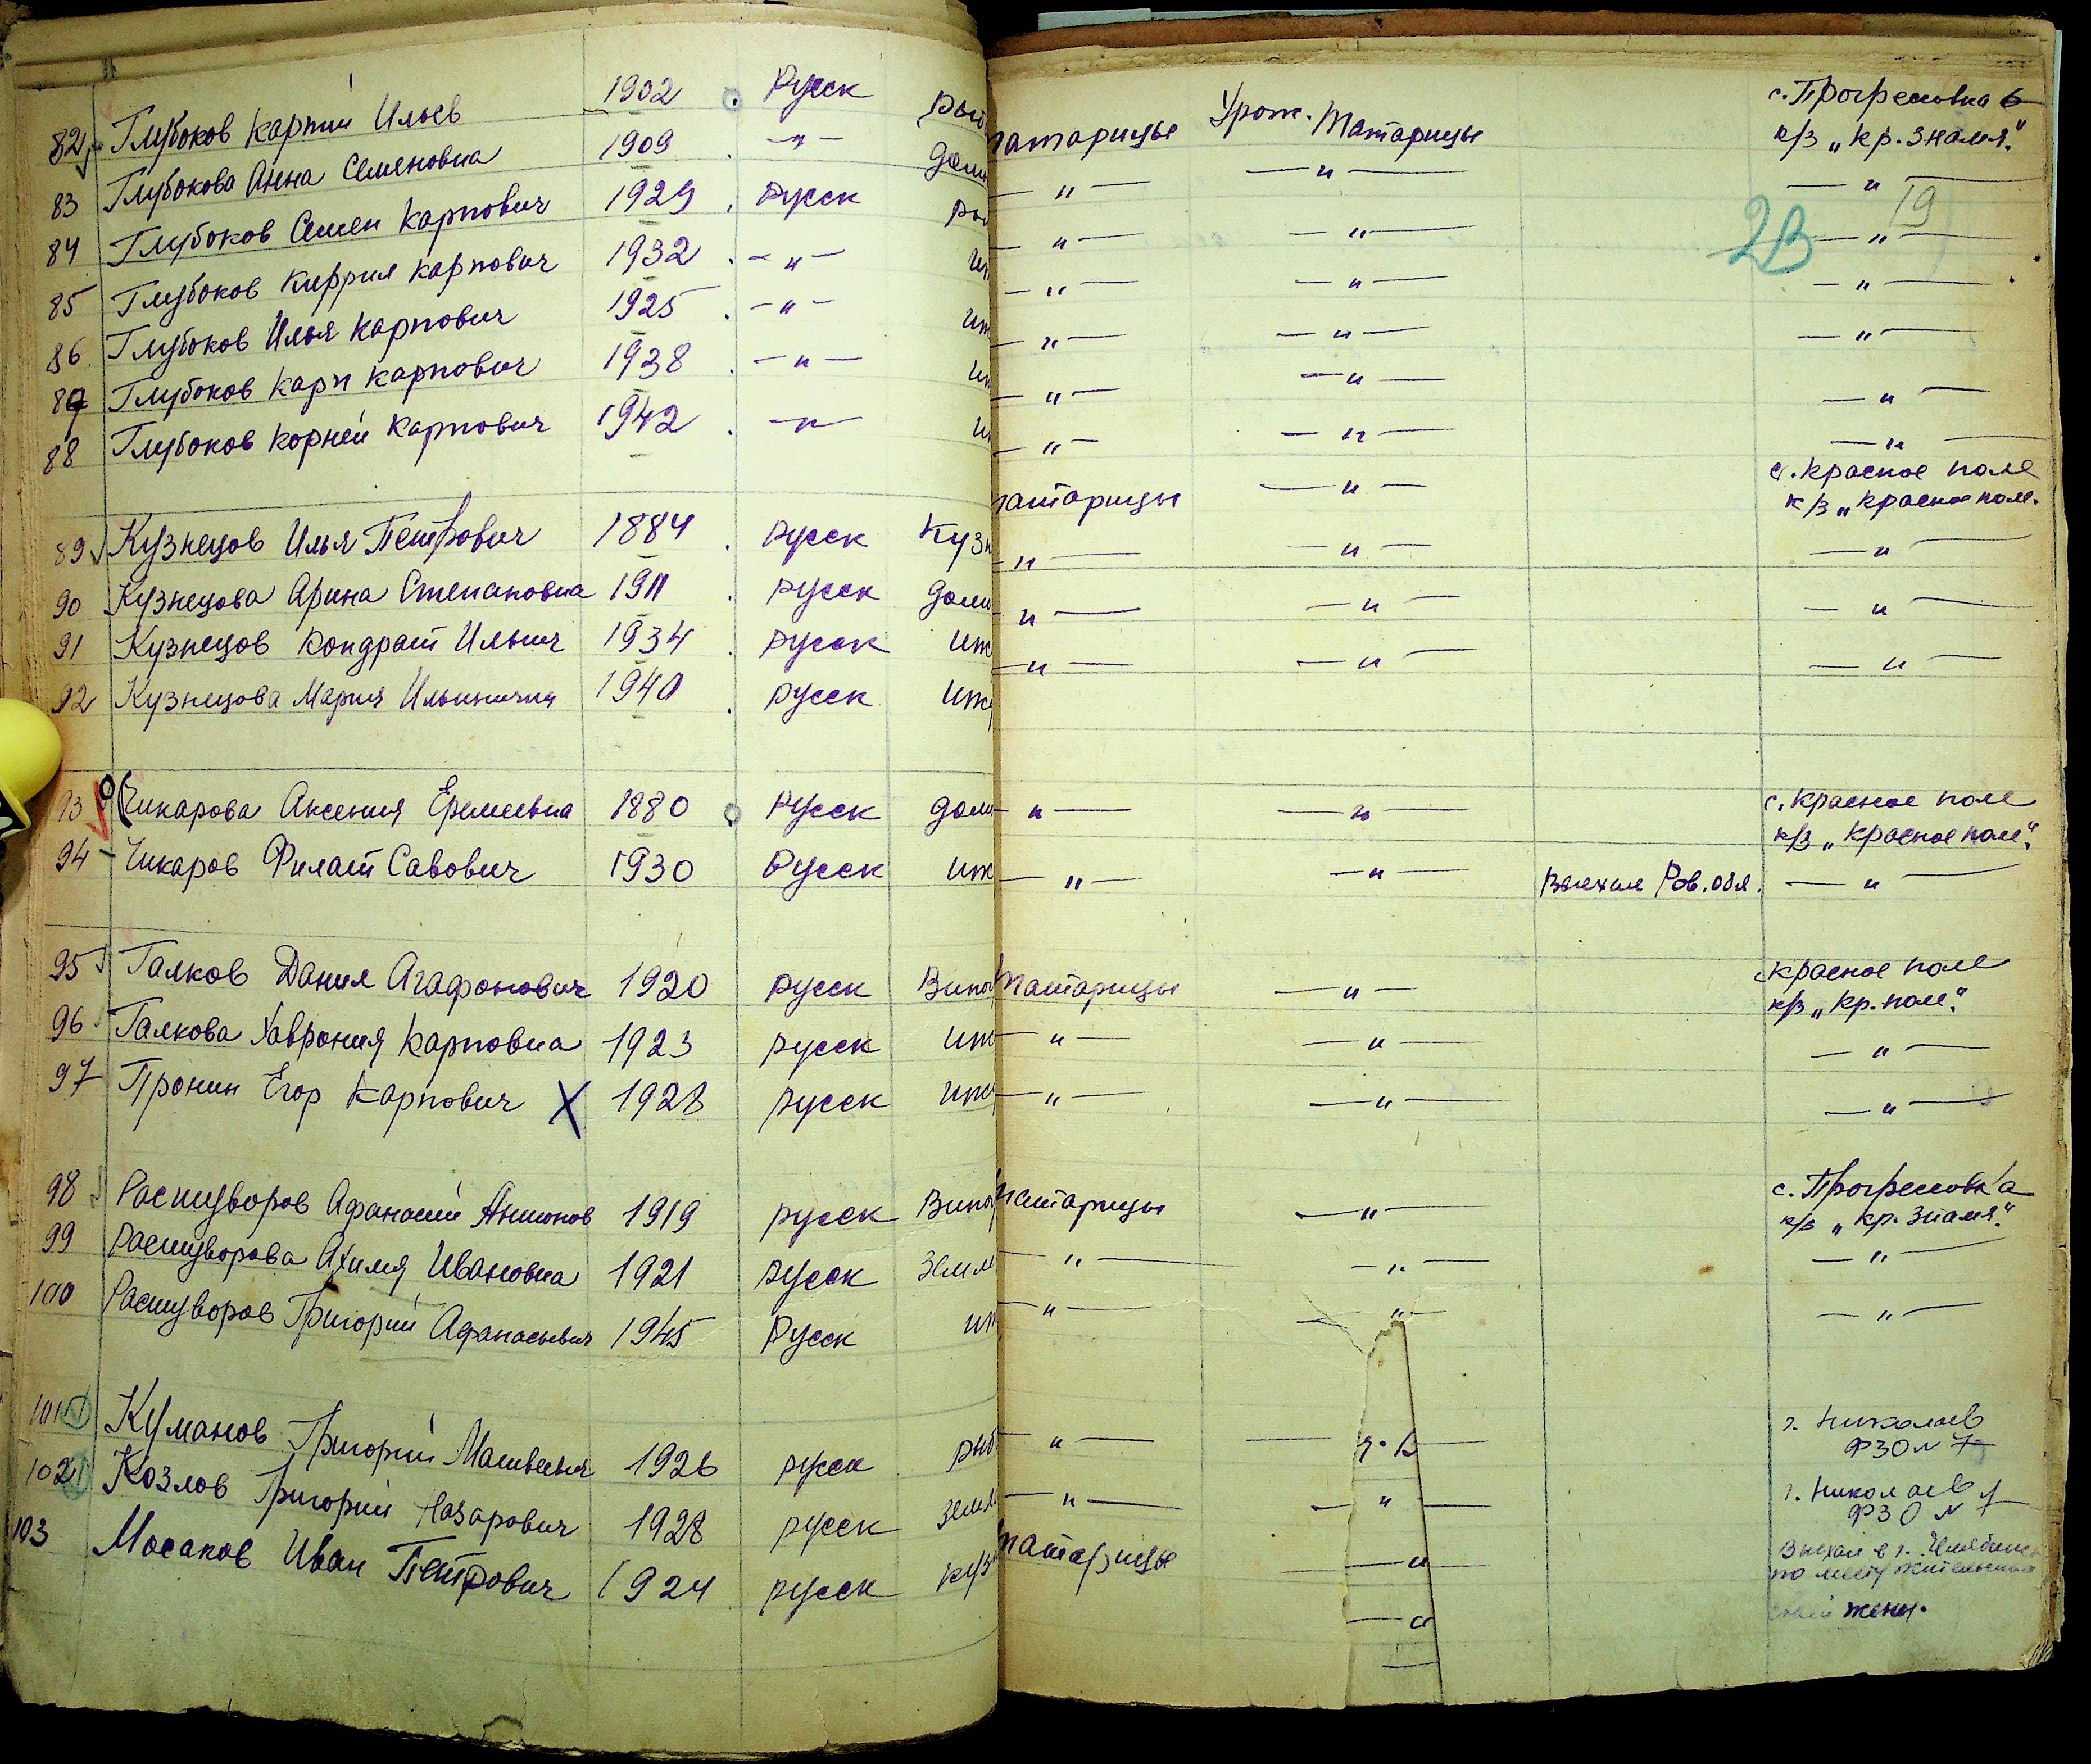 82 Глубоков Карпий Ильев 1902 Русск рыб
83 Глубокова Анна Семеновна 1909 —"— дом
84 Глубоков Семен Карпович 1929 Русск ры
85 Глубоков Киррил Карпович 1932 —"— иж
86 Глубоков Илья Карпович 1925 —"— иж
87 Глубоков Карп Карпович 1938 —"— иж
88 Глубоков Корней Карпович 1942 —"— и
89 Кузнецов Илья Петрович 1884 Русск Кузн
90 Кузнецова Арина Степановна 1911 Русск дом
91 Кузнецов Кондрат Ильич 1934 Русск иж
92 Кузнецова Мария Ильинична 1940 Русск иж
93 Чикарова Аксения Еремеевна 1880 Русск дом
94 Чикаров Филат Савович 1930 Русск иж
95 Галков Данил Агафонович 1920 русск Вино
96 Галкова Хаврония Карповна 1923 русск иж
97 Пронин Егор Карпович X 1928 русск иж
98 Растуворов Афанасий Антонов 1919 русск Вино
99 Растуворова Ахимя Ивановна 1921 русск Земл
100 Растуворов Григорий Афанасьевич 1945 Русск иж
101 Куманов Григорий Матвеевич 1926 русск рыб
102 Козлов Григорий Назарович 1928 русск земл
103 Мосаков Иван Петрович 1924 русск куз
с. Прогресовка
татарицы Урож. Татарицы к/з „Кр. Знамя“.
—"— —"— —"—
19
2В
—"— —"— —"—
—"— —"— —"—
—"— —"— —"—
—"— —"— —"—
—"— —"— —"—
с. Красное поле
татарицы —"— к/з „Красное поле.
—"— —"— —"—
—"— —"— —"—
—"— —"— —"—
с. Красное поле
—"— —"— к/з „Красное поле“.
—"— —"— Выехал Ров. обл. —"—
с. Красное поле
Татарицы —"— к/з „Кр. поле“.
—"— —"— —"—
—"— —"— —"—
с. Прогресовка
татарицы —"— к/з „Кр. Знамя“.
—"— —"— —"—
—"— —"— —"—
г. Николаев
—"— ФЗО № 7
г. Николаев
—"— —"— ФЗО №
Татарицы —"— Выехал в г. Челябинск
по месту жительства
—"— своей жены.